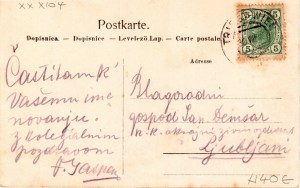 XX X/04
Postkarte.
Dopisnica. — Dopisnice — Levelező-Lap. — Carte postale.
Adresse
5 5
Častitam k
Vašemu ime
novanju.
z kolegialnim
pozdravom
Blagorodni
gospod Iv. Demšar
c. k. okrajni
Ljubljani